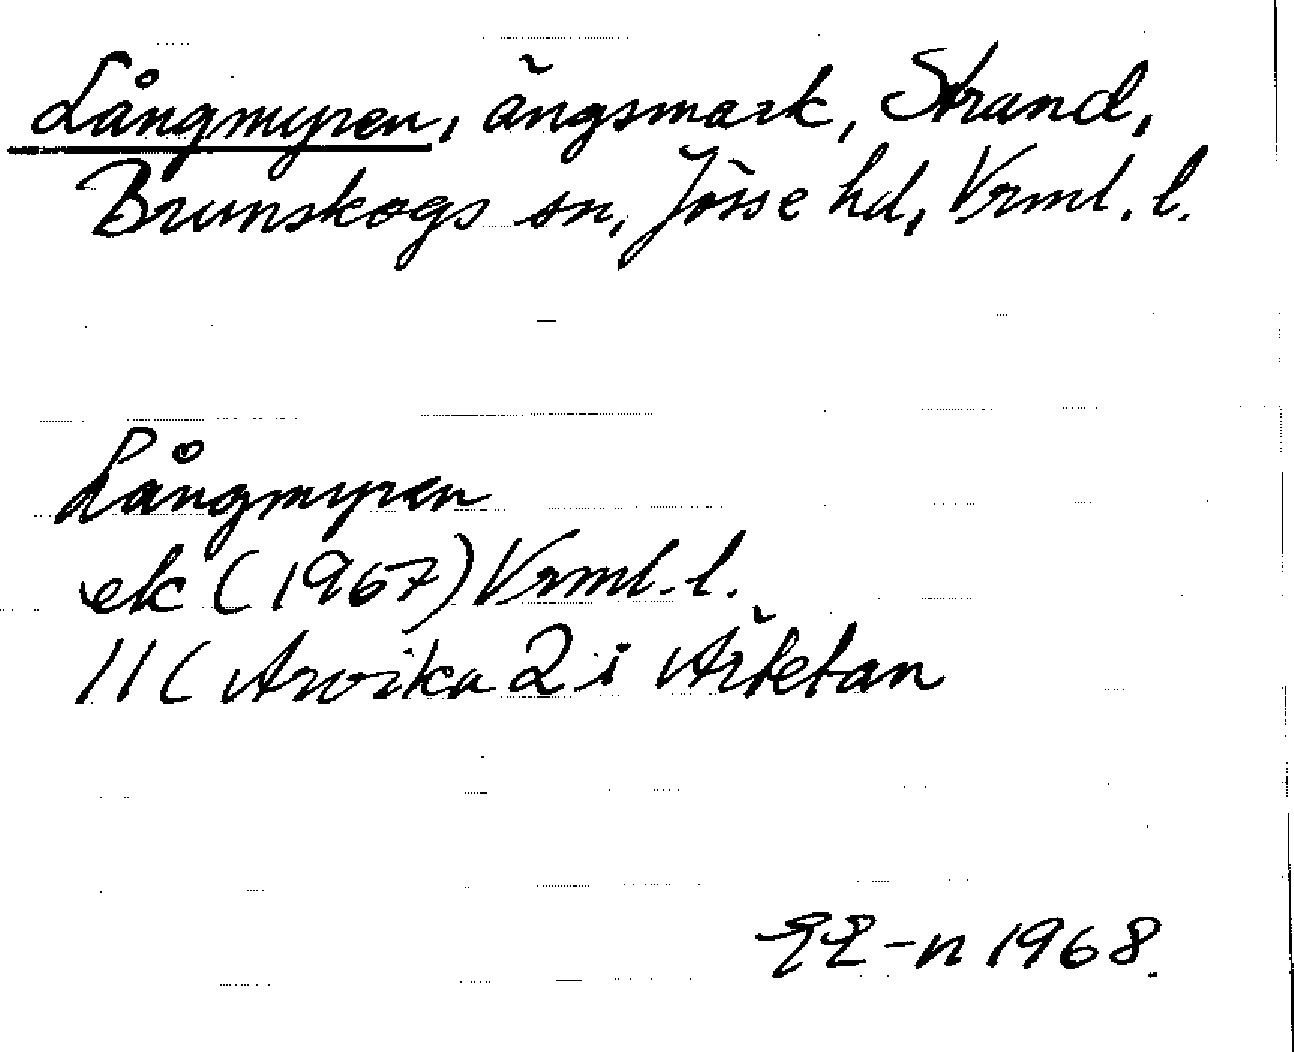 Långmyren, ängsmark, Strand,
Brunskogs sn, Jösse hd, Vrml. l.
Långmyren
ek (1967) Vrml. l.
11C Arvika 2 i Årtetan
EE-n 1968.